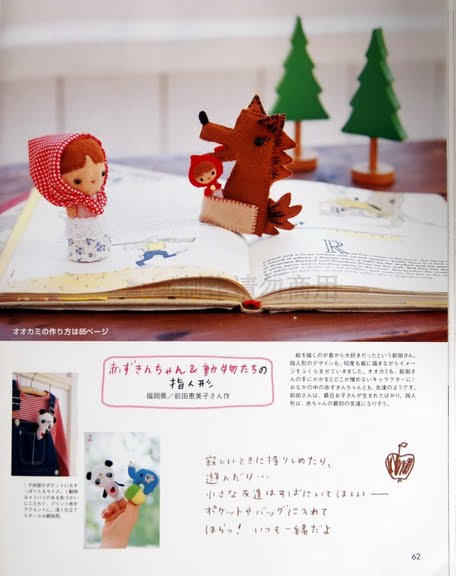 オオカミの作り方は65ページ
赤ずきんちゃん&動物たちの
指人形
福岡県/前田恵美子さん作
絵を描くのが昔から大好きだったという前田さん。
指人形のデザインも、何度も紙に描きながらイメー
ジをふくらませていきました。オオカミも、前田さ
んの手にかかるとどこか憎めないキャラクターに!
おなかの中の赤ずきんちゃんとも、友達のようです。
前田さんは、最近お子さんが生まれたばかり。指人
形は、赤ちゃんの最初の友達になりそう。
寂しいときに握りしめたり、
遊んだり…
小さな友達はそばにいてほしい
ポケットやバッグに入れて
ほらっ! いつも一緒だよ
1 子供服のポケットにもす
っぽり入るサイズ。2 動物
はメリハリのある色づかい
にこだわり、プリント地を
アクセントに。
2
请勿商用
62